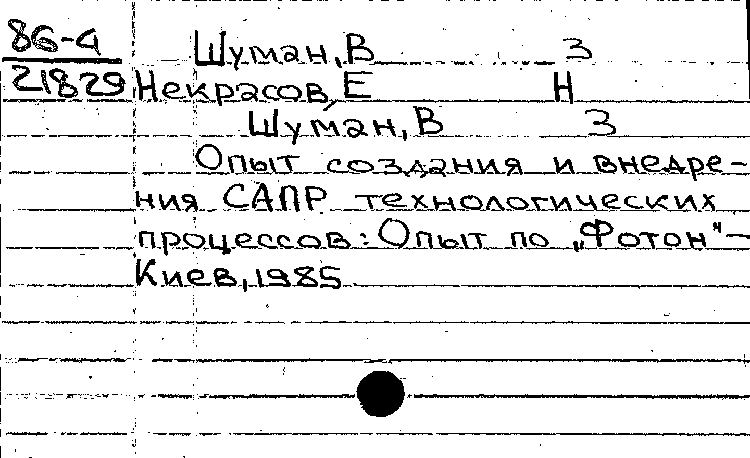 86-4 Шуман, В З
21829 Некрасов, Е Н
Шуман, В З
Опыт создания и внедре-
ния САПР технологических
процессов: Опыт по „Фотон"—
Киев, 1985